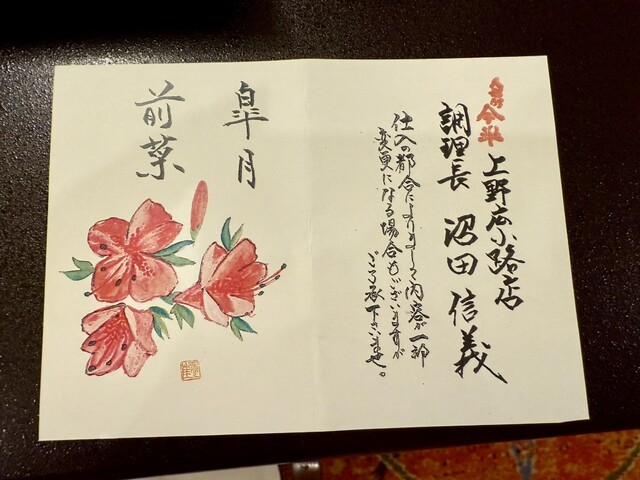 人形町今半 上野広小路店
調理長 沼田信義
仕入の都合によりまして内容が一部
変更になる場合もございますが
ご了承下さいませ。
皐月
前菜